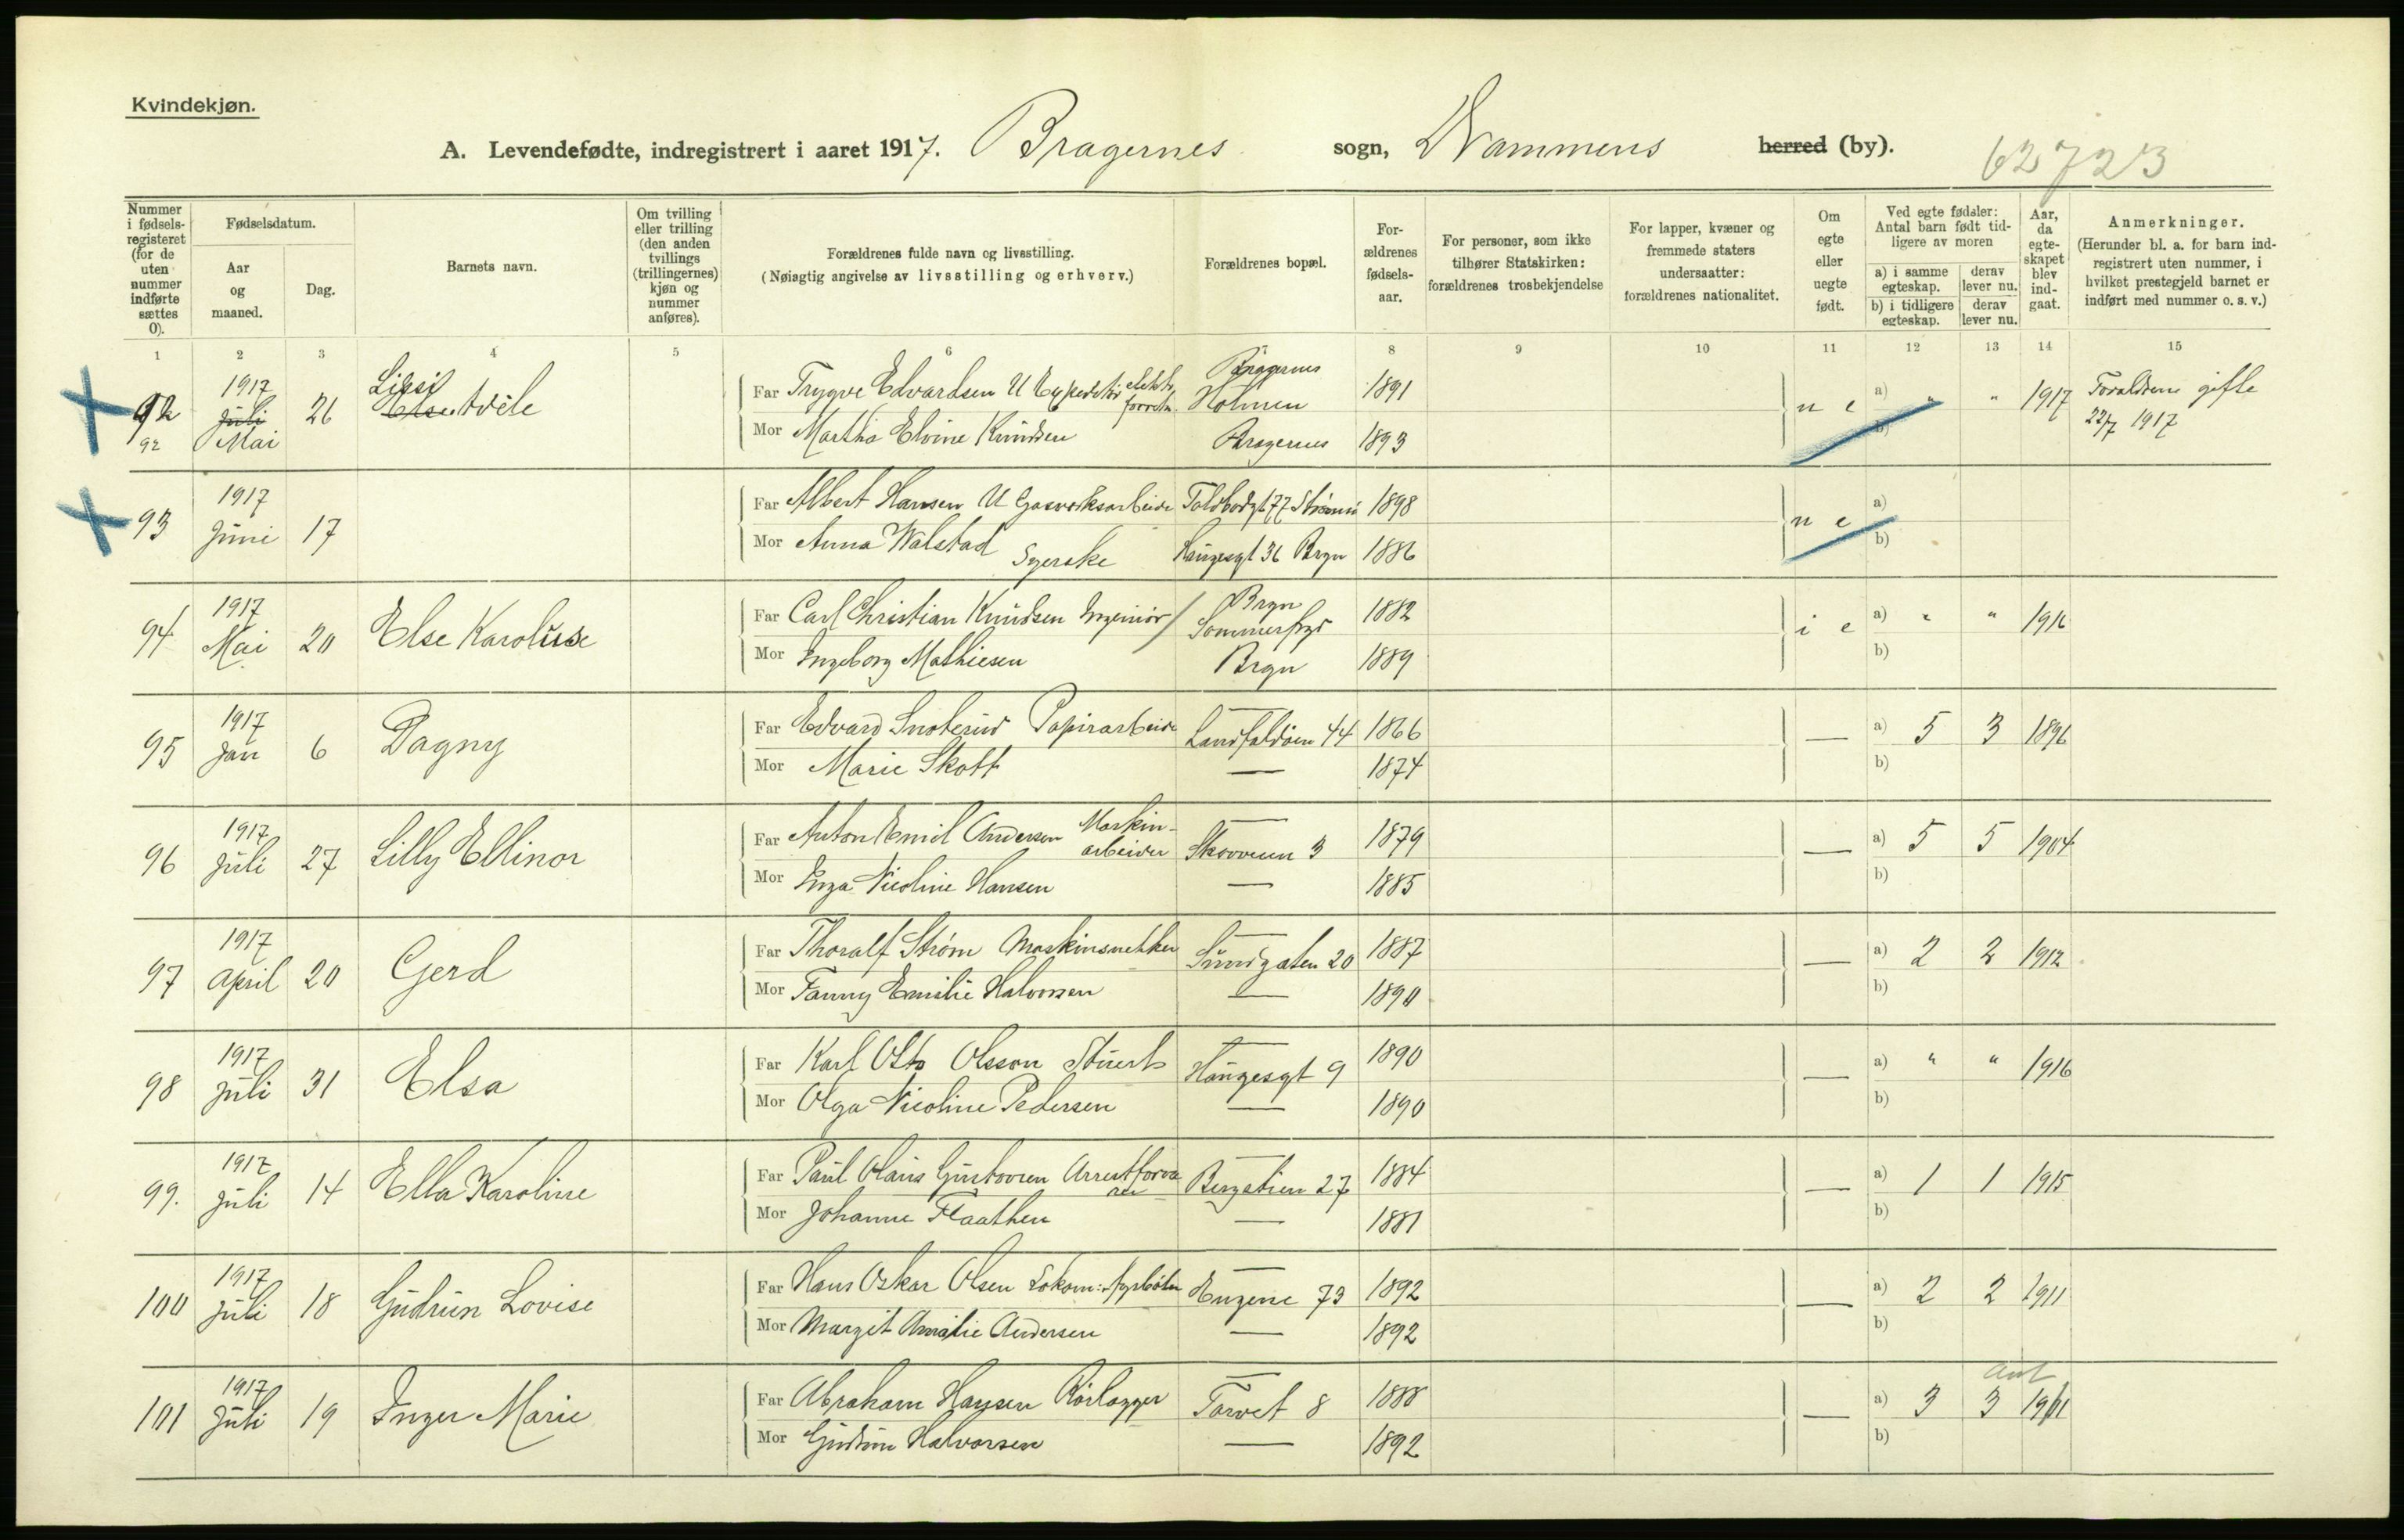 Kvindekjøn.
A. Levendefødte, indregistrert i aaret 1917. Bragernes sogn, Drammens herred (by). 62723
Nummer i fødsels-registeret (for de uten nummer indførte sættes 0).
Fødselsdatum.
Aar og maaned.
Dag.
Barnets navn.
Om tvilling eller trilling (den anden tvillings (trillingernes) kjøn og nummer anføres).
Forældrenes fulde navn og livsstilling.
(Nøiagtig angivelse av livsstilling og erhverv.)
Forældrenes bopæl.
For-ældrenes fødsels-aar.
For personer, som ikke tilhører Statskirken: forældrenes trosbekjendelse
For lapper, kvæner og fremmede staters undersaatter: forældrenes nationalitet.
Om egte eller uegte født.
Ved egte fødsler: Antal barn født tid-ligere av moren
a) i samme egteskap.
derav lever nu.
b) i tidligere egteskap.
derav lever nu.
Aar, da egte-skapet blev ind-gaat.
Anmerkninger.
(Herunder bl. a. for barn ind-registrert uten nummer, i hvilket prestegjeld barnet er indført med nummer o. s. v.)
1 2 3 4 5 6 7 8 9 10 11 12 13 14 15
92 1917 Juli Mai 26 Else
92
Far Trygve Edvardsen U elektr. forretn. Bragernes Holmen 1891 a) " " 1917 Foraldrene gifte
Mor Martha Elvine Knudsen Bragernes 1893 b) 22/7 1917
93 1917 Juni 17
Far Albert Hansen U Gasverksarbeider Toldbodgt 77 Strømsø 1898 a)
Mor Anna Walstad Syerske Haugesgt 36 Brgn 1886 b)
94 1917 Mai 20 Else Karolise
Far Carl Christian Knudsen Ingeniør Brgn 1882 i e a) " " 1916
Mor Ingeborg Mathiesen Brgn 1889 b)
95 1917 Jan 6 Dagny
Far Edvard Snoterud Papirarbeider Landfaldøen 44 1866 — a) 5 3 1896
Mor Marie Skott — 1874 b)
96 1917 Juli 27 Lilly Ellinor
Far Anton Emil Andersen Maskin-arbeider Skovveien 3 1879 — a) 5 5 1904
Mor Inga Nicoline Hansen — 1885 b)
97 1917 April 20 Gerd
Far Thoralf Strøm Maskinsnekker Sundgaten 20 1887 — a) 2 2 1912
Mor Fanny Emilie Halvorsen — 1890 b)
98 1917 Juli 31 Elsa
Far Karl Otto Olsson Stuert Haugesgt 9 1890 — a) " " 1916
Mor Olga Nicoline Pedersen — 1890 b)
99. 1917 Juli 14 Ella Karoline
Far Paul Olaus Gustavsen Arrestforvarer Bergstien 27 1884 — a) 1 1 1915
Mor Johanne Flaathen — 1881 b)
100 1917 Juli 18 Gudrun Lovise
Far Hans Oskar Olsen Lokom: fyrbøter Engene 73 1892 — a) 2 2 1911
Mor Margit Amalie Andersen — 1892 b)
101 1917 Juli 19 Inger Marie
Far Abraham Hansen Rørlægger Torvet 8 1888 — a) 3 3 1911
Mor Gudrun Halvorsen — 1892 b)